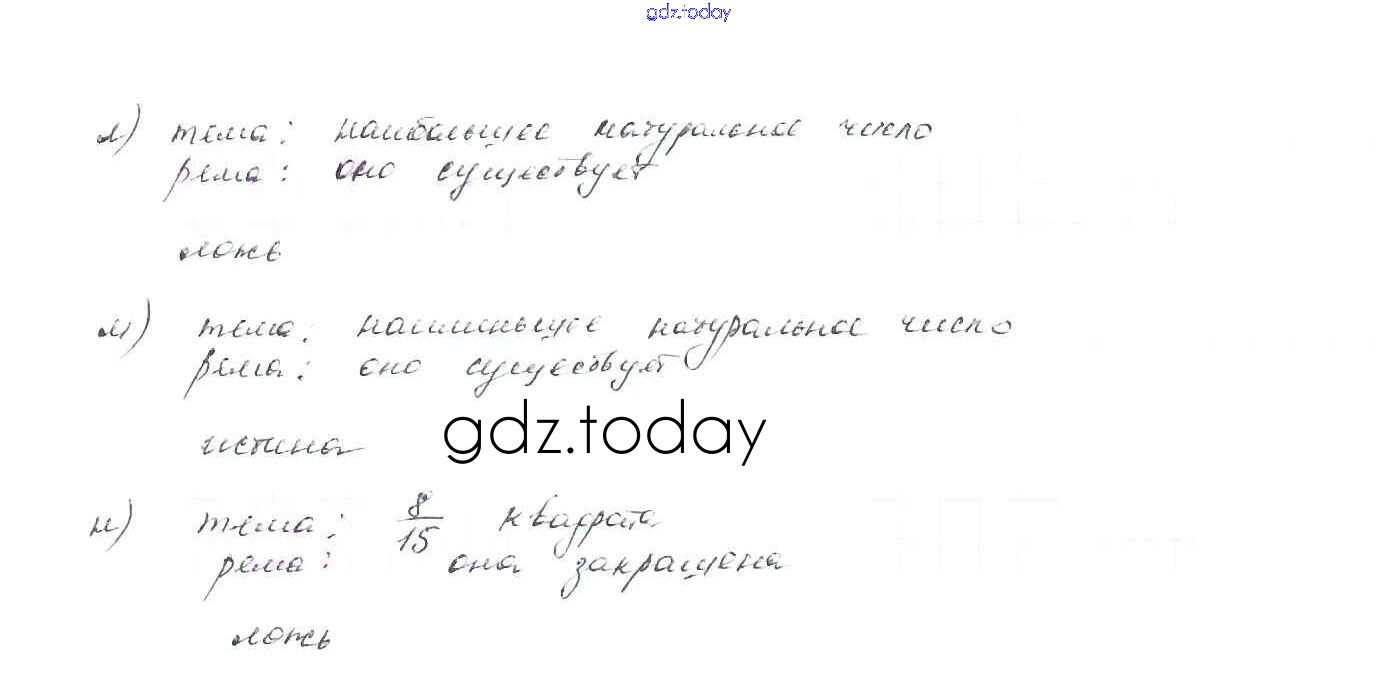 gdz.today
л) тема: наибольшее натуральное число
рема: оно существует
ложь
м) тема: наименьшее натуральное число
рема: оно существует
истина
gdz.today
н) тема: 8/15 квадрата
рема: она закрашена
ложь